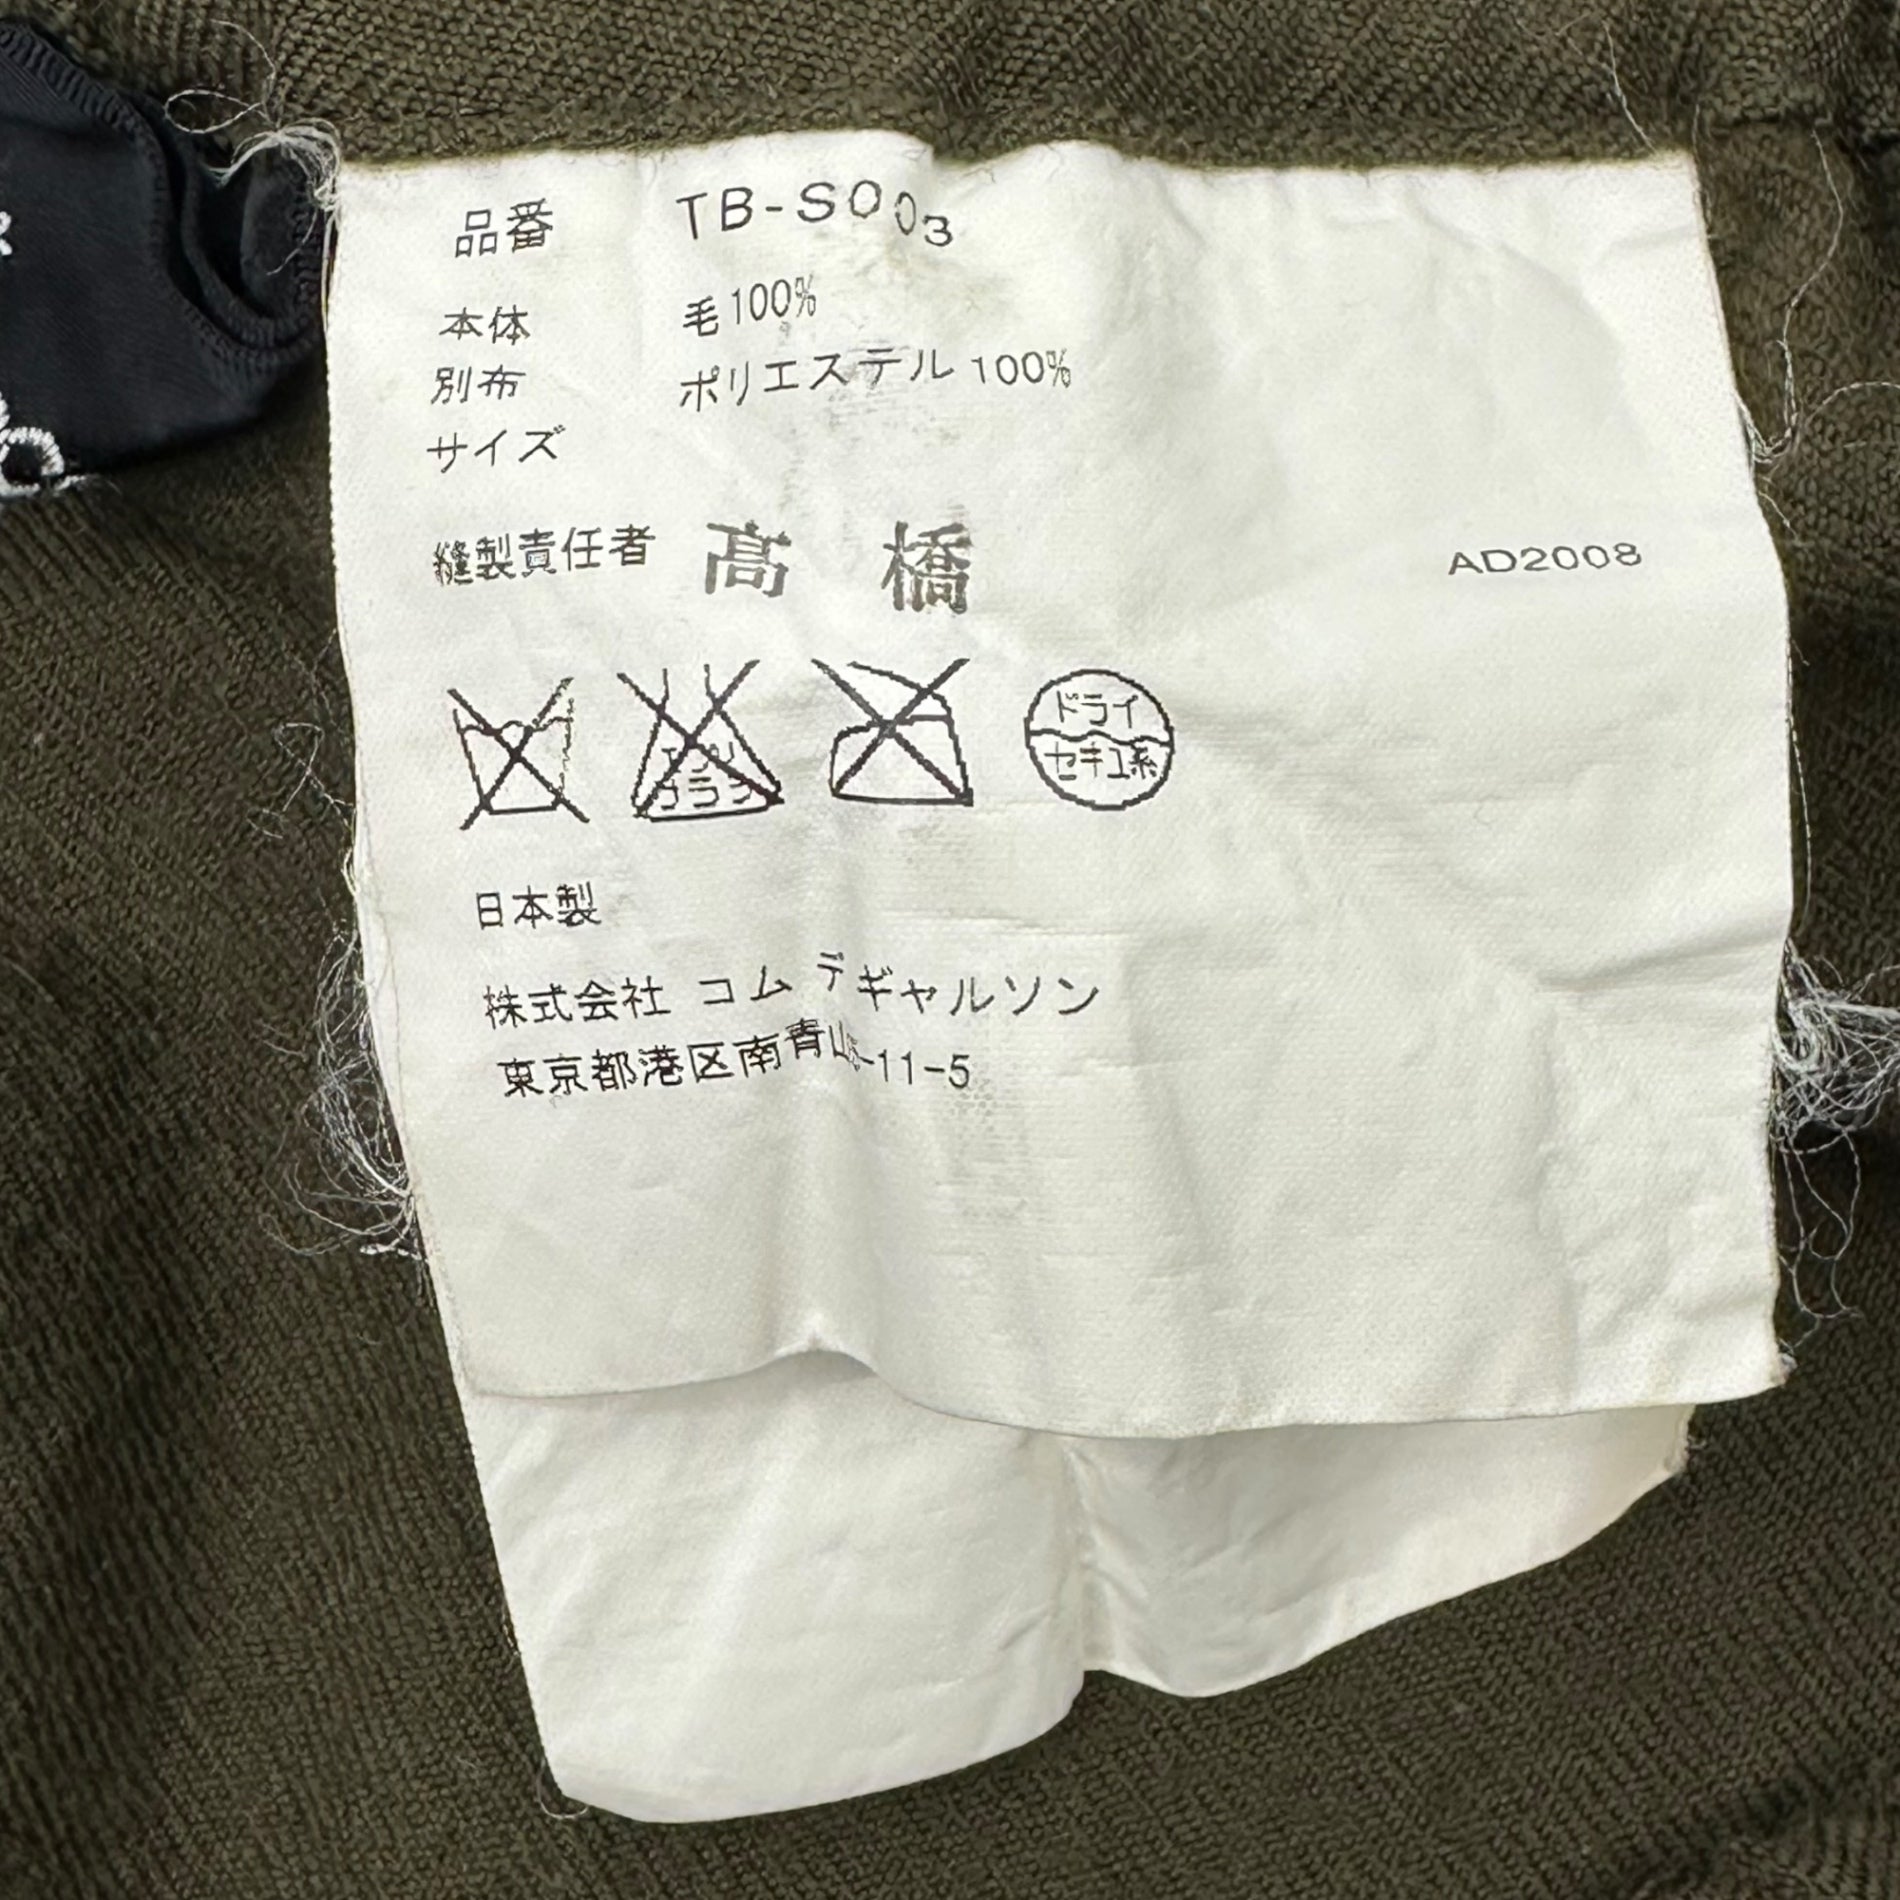 品番 TB-S003
本体 毛100%
別布 ポリエステル100%
サイズ
縫製責任者 髙橋
AD2008
エンソ
サラシ
ドライ
セキユ系
日本製
株式会社 コム デギャルソン
東京都港区南青山5-11-5